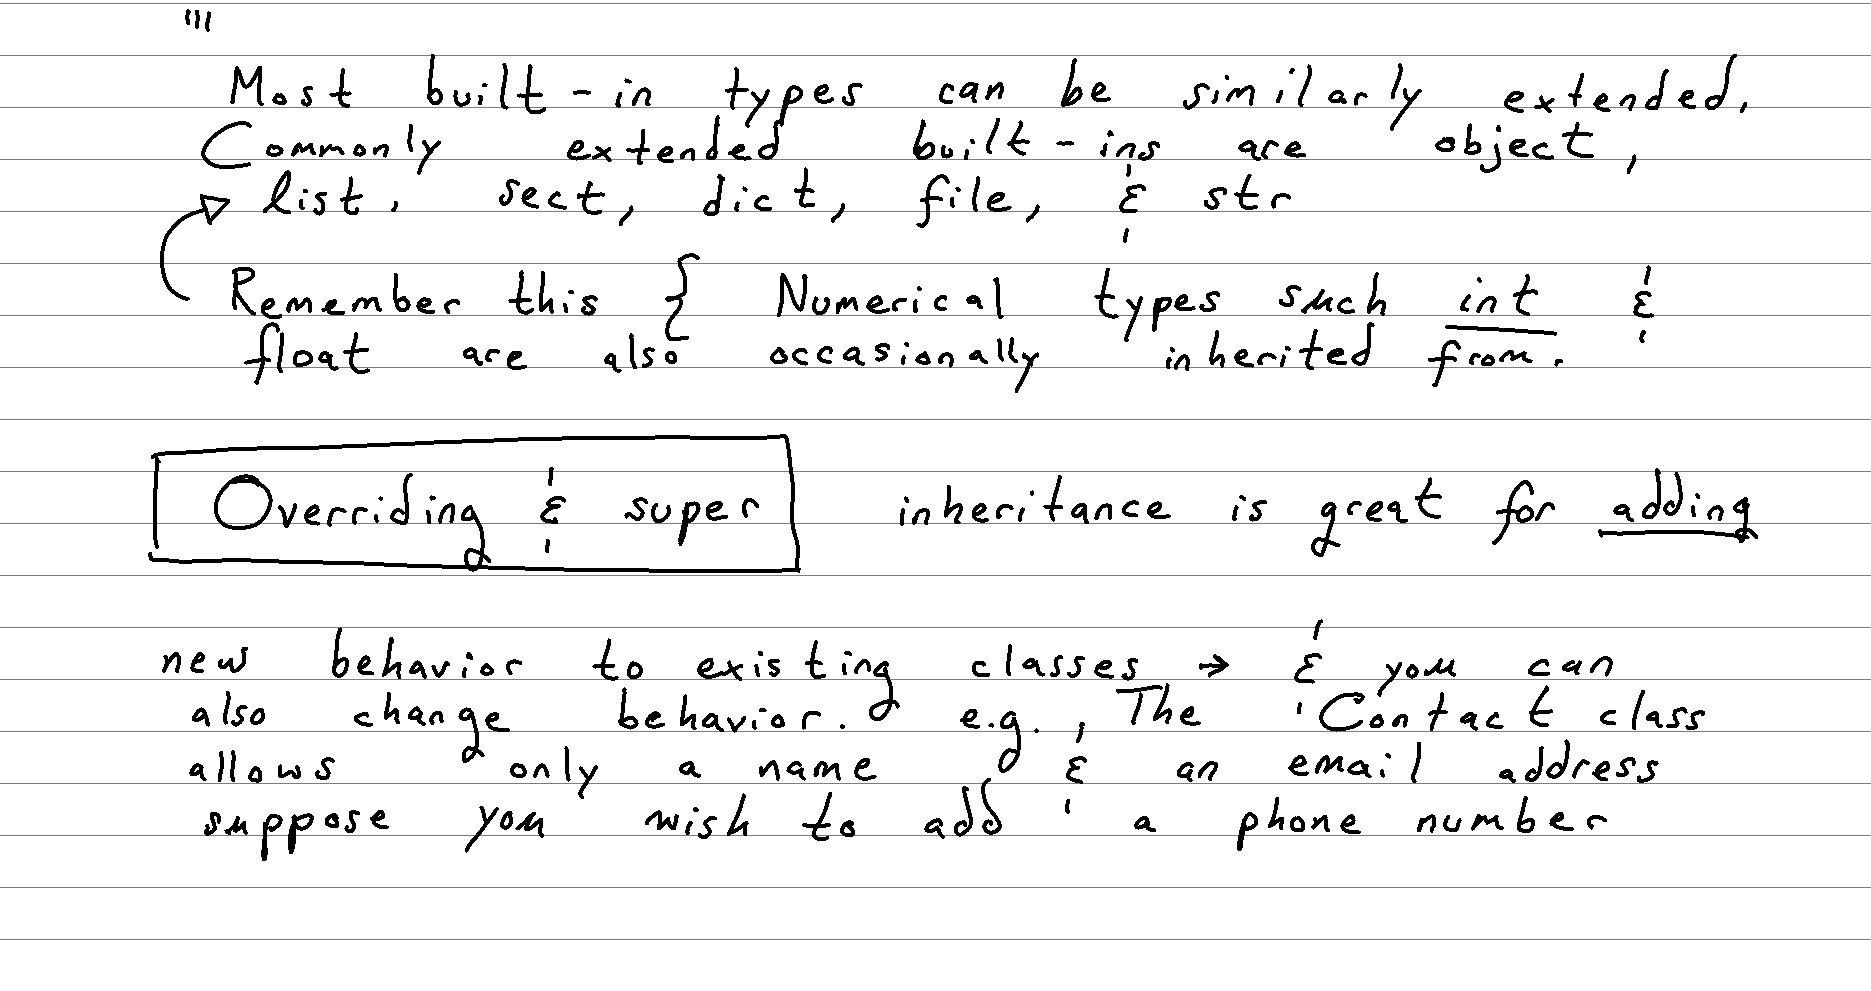 "'
Most built-in types can be similarly extended.
Commonly extended built-ins are object,
list, sect, dict, file, & str
Remember this { Numerical types such int &
float are also occasionally inherited from.
Overriding & super inheritance is great for adding
new behavior to existing classes → & you can
also change behavior. e.g., The Contact class
allows only a name & an email address
suppose you wish to add a phone number